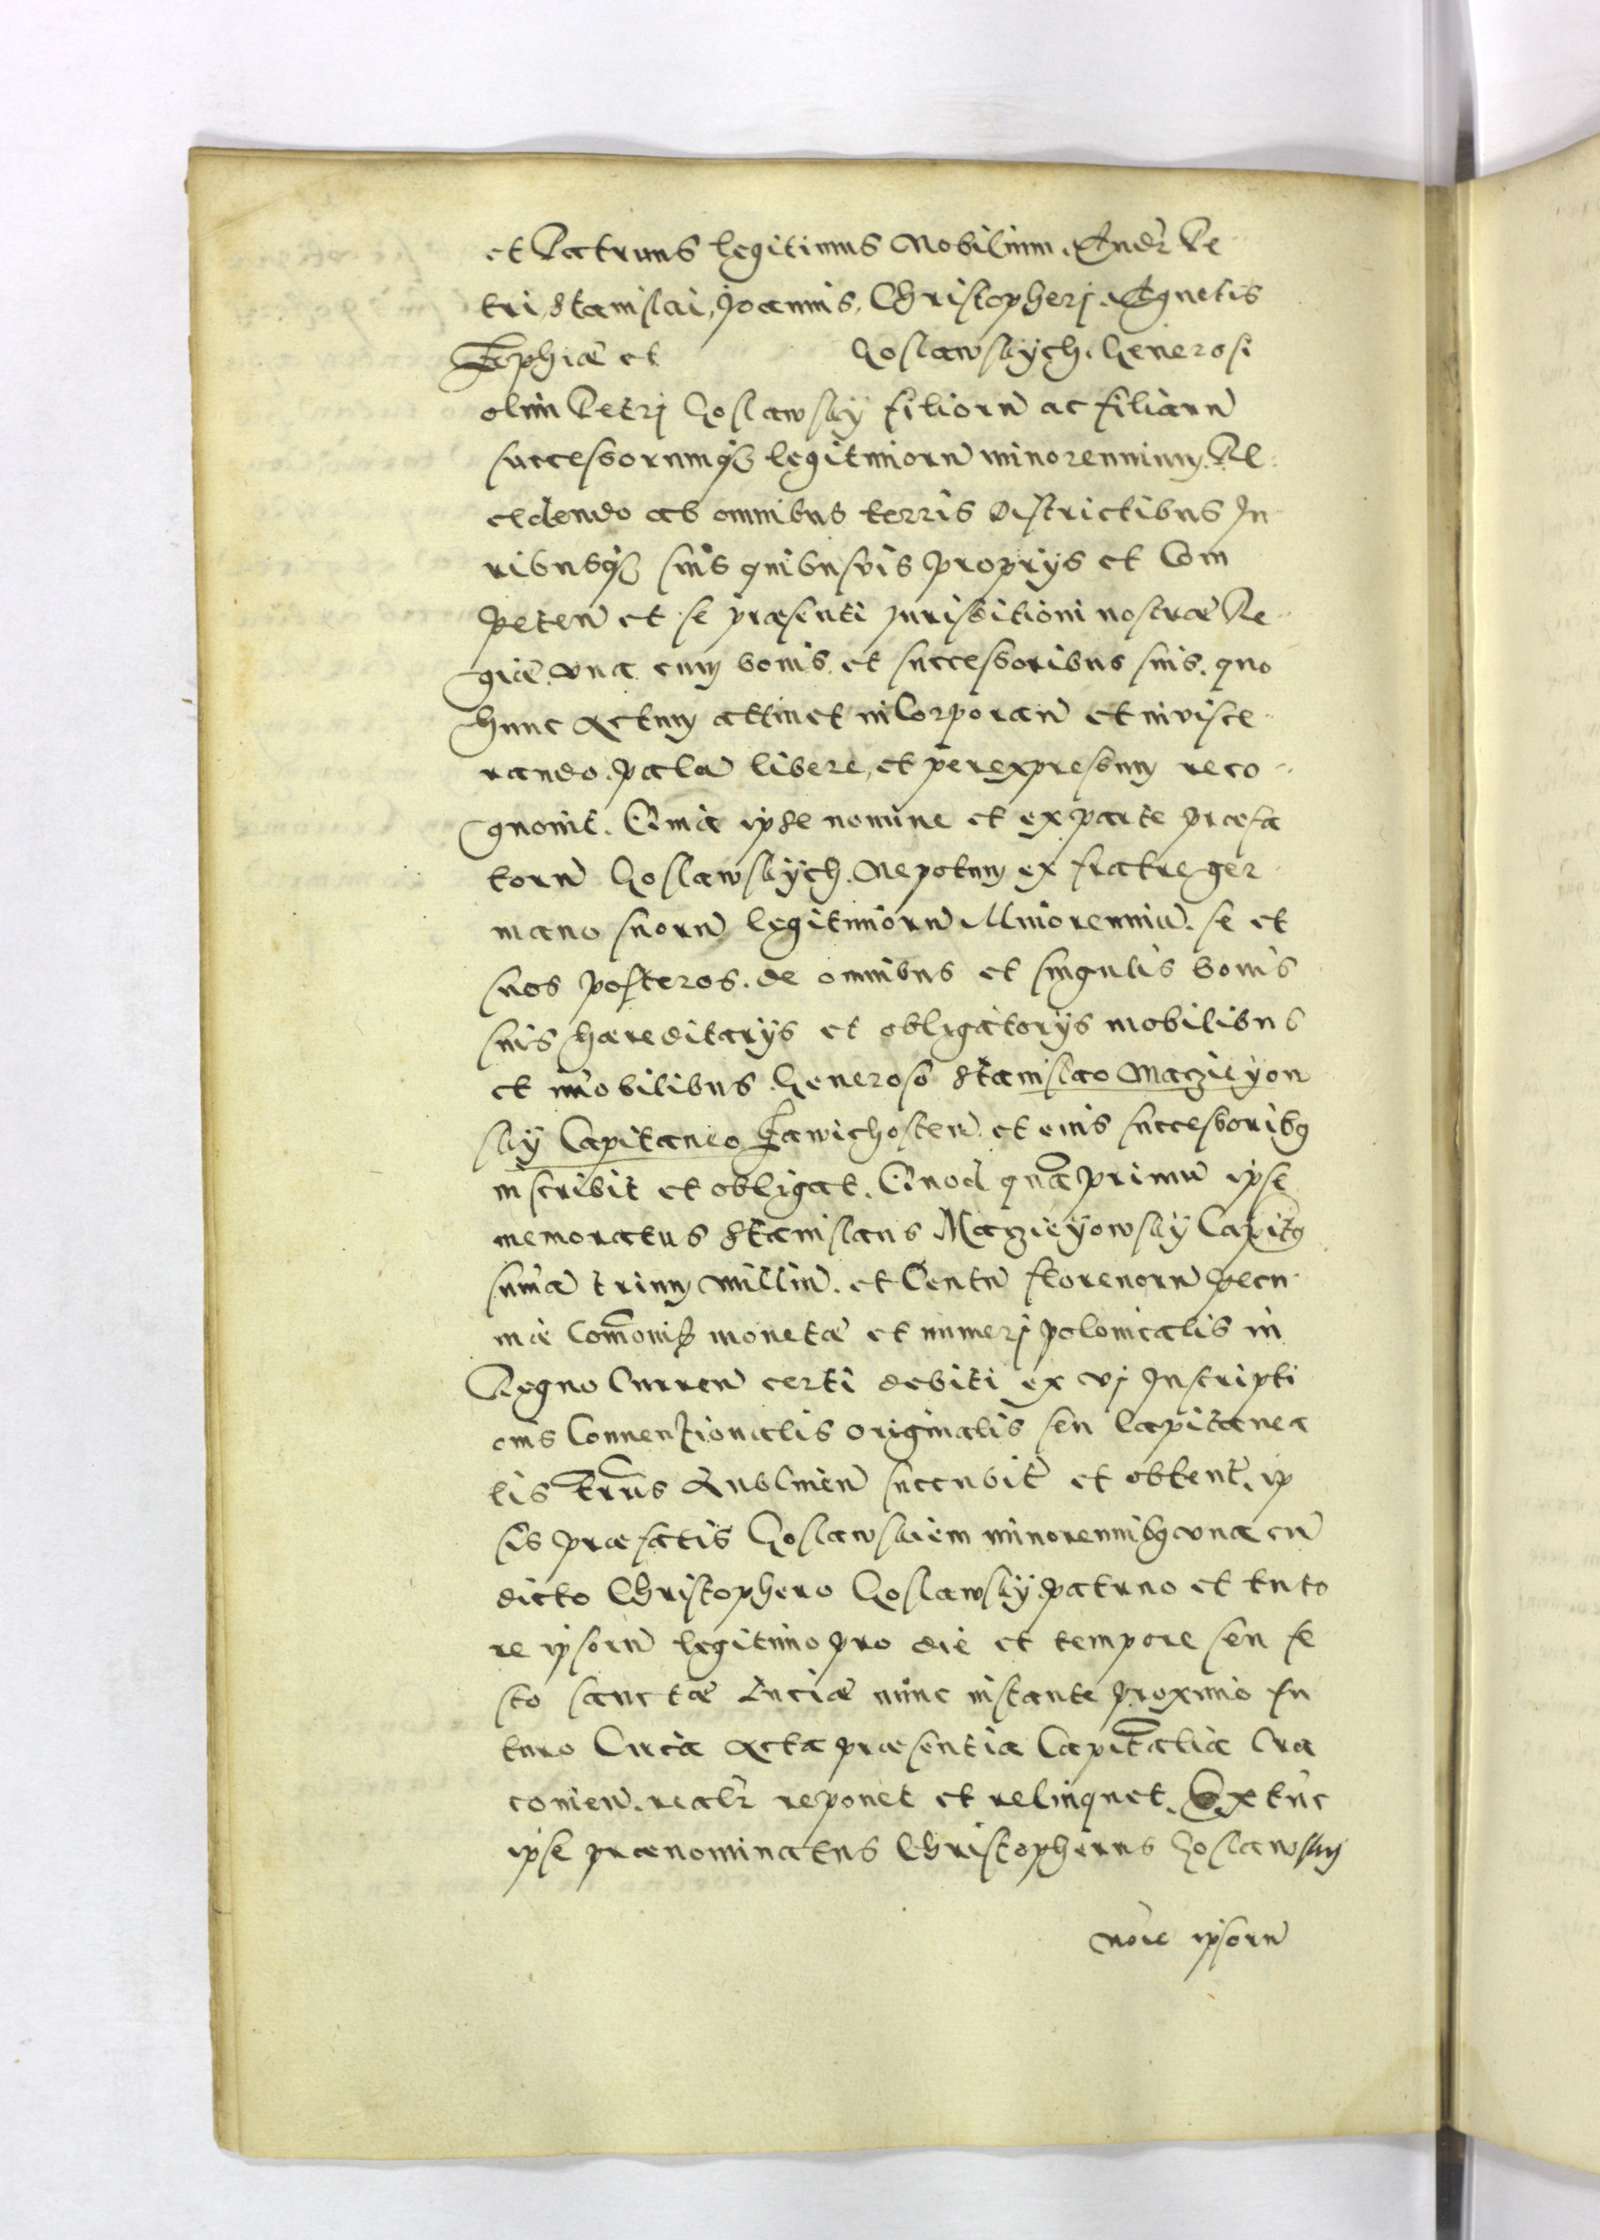 et Patruus legitimus Nobilium. Andr̃ Pe
tri, Stanislai, Joannis, Christopherj. Agnetis
Sophiæ et Goslawskÿch. Generosi
olim Petrj Goslawskÿ filiorũ ac filiarũ
successorumq₃ legitimorũ minorennium. Re
cedendo ab omnibus terris Districtibus Ju
ribusq₃ suis quibusvis proprÿs et Com
peteñ et se præsenti jurisditioni nostræ Re
giæ. vna cum bonis et successoribus suis. quo
hunc Actum attinet inCorporañ et invisce
rando. palã libere, et perexpressum reco
gnovit. Quia ipse nomine et ex parte præfa
torũ Goslawskÿch. Nepotum ex fratre ger
mano suorũ legitimorũ Minorenniũ. se et
suos posteros. de omnibus et singulis bonis
suis hæreditarÿs et obligatorÿs mobilibus
et im̃obilibus. Generoso Stanislao Maczieÿow
skÿ Capitaneo Zawichosteñ. et eius successorib9
inscribit et obligat. Quod quã primũ ipse
memoratus Stanislaus Maczieÿowskÿ Capit9
sum̃ã trium milliũ. et Centũ florenorũ pecu
niæ Com̃onis monetæ et numerj polonicalis in
Regno Curreñ certi debiti ex vj Inscripti
onis Connenzionalis originalis seu Capitanea
lis Trr̃ns Lublineñ succubit̃ et obtent̃. ip
sis præfatis Goslawskiem minorennib9 vna cũ
dicto Christophero Goslawskÿ patruo et tuto
re ipsorũ legitimo pro die et tempore seu fe
sto sanctæ Luciæ nunc instante proximo fu
turo Circa Acta præsentia Capit̃alia Cra
covieñ. realr̃ reponet et relinquet. Extũc
ipse prænominatus Christopherus Goslawskÿ
noĩe ipsorũ